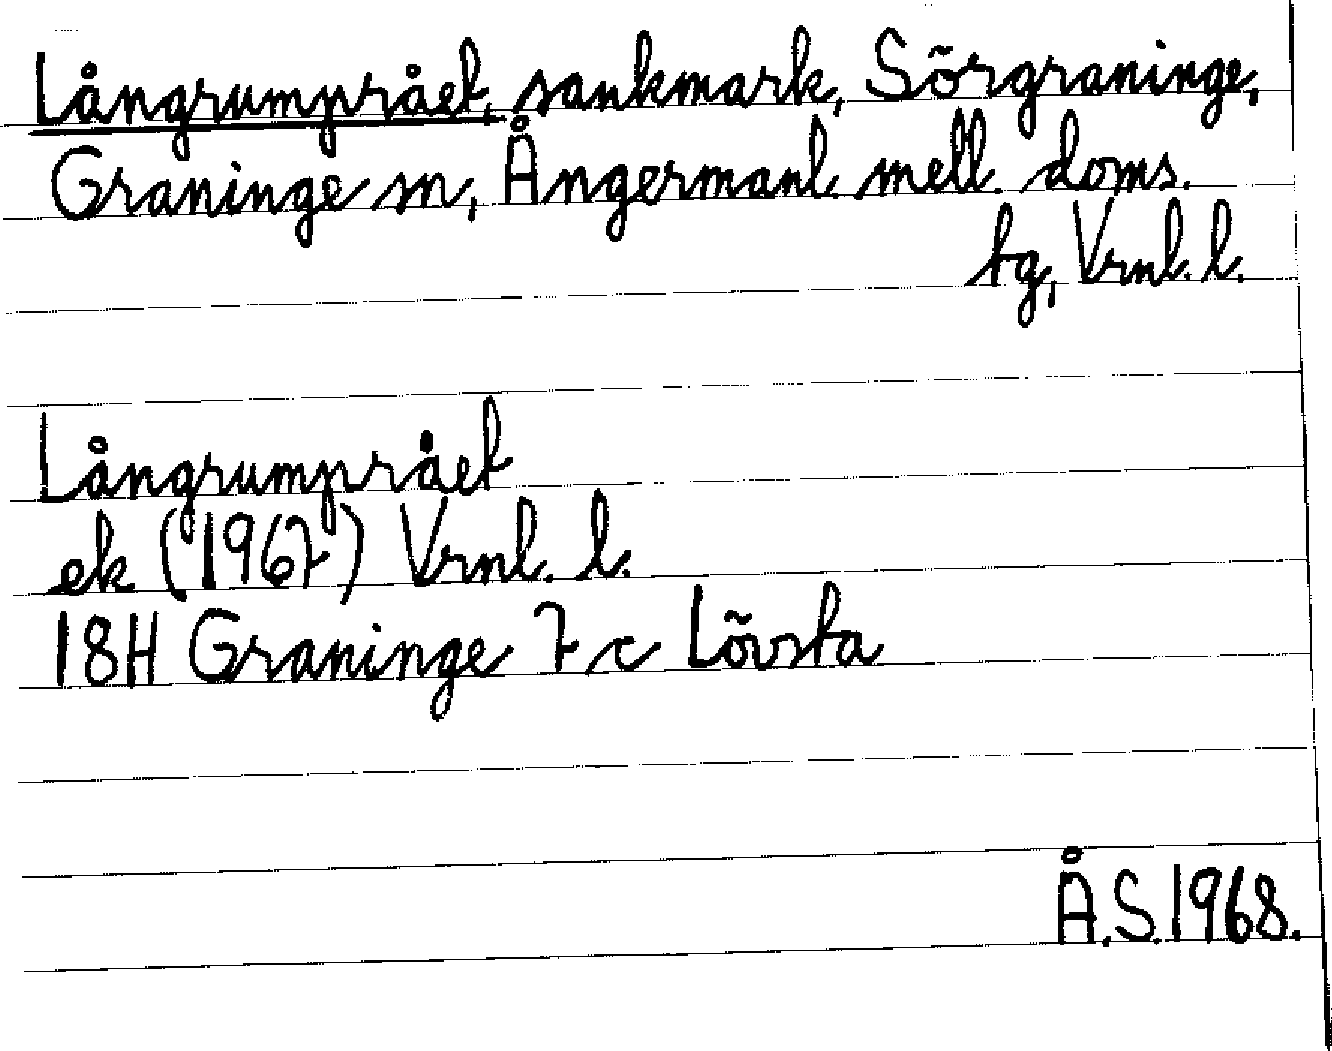 Långrumprået, sankmark, Sörgraninge,
Graninge sn, Ångermanl. mell. doms.
tg, Vrnl. l.
Långrumprået
ek (1967) Vrnl. l.
18H Graninge 7c Lövsta
Å.S. 1968.